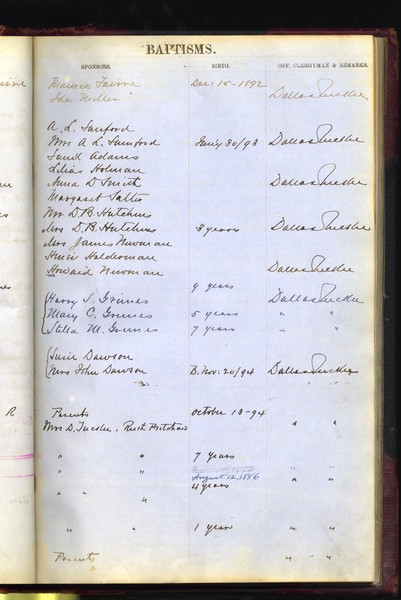 BAPTISMS.
SPONSORS. BIRTH. OFF. CLERGYMAN & REMARKS.
Dec: 18 - 1892
Ida Miller Dallas Tucker
A. L. Sanford
Mrs A L. Sanford July 30/93 Dallas Tucker
Adams
Lilias Holman
Anna D Smith Dallas Tucker
Margaret
Mr D. B. Hutchins
Mrs D. B. Hutchins 3 years Dallas Tucker
Mrs James Newman
Haldeman
Howard Newman Dallas Tucker
9 years
Harry S. Grimes Dallas Tucker
Mary C. Grimes 5 years " "
Stella M. Grimes 7 years " "
Susie Dawson
Mrs John Dawson B. Nov: 20/94 Dallas Tucker
" "
R Parents October 13-94
Mrs D. Tucker. Ruth Pritchard " "
" " 7 years
" " " "
August 12, 1886 " "
" " 4 years
"
" " 1 year " "
Parents " "